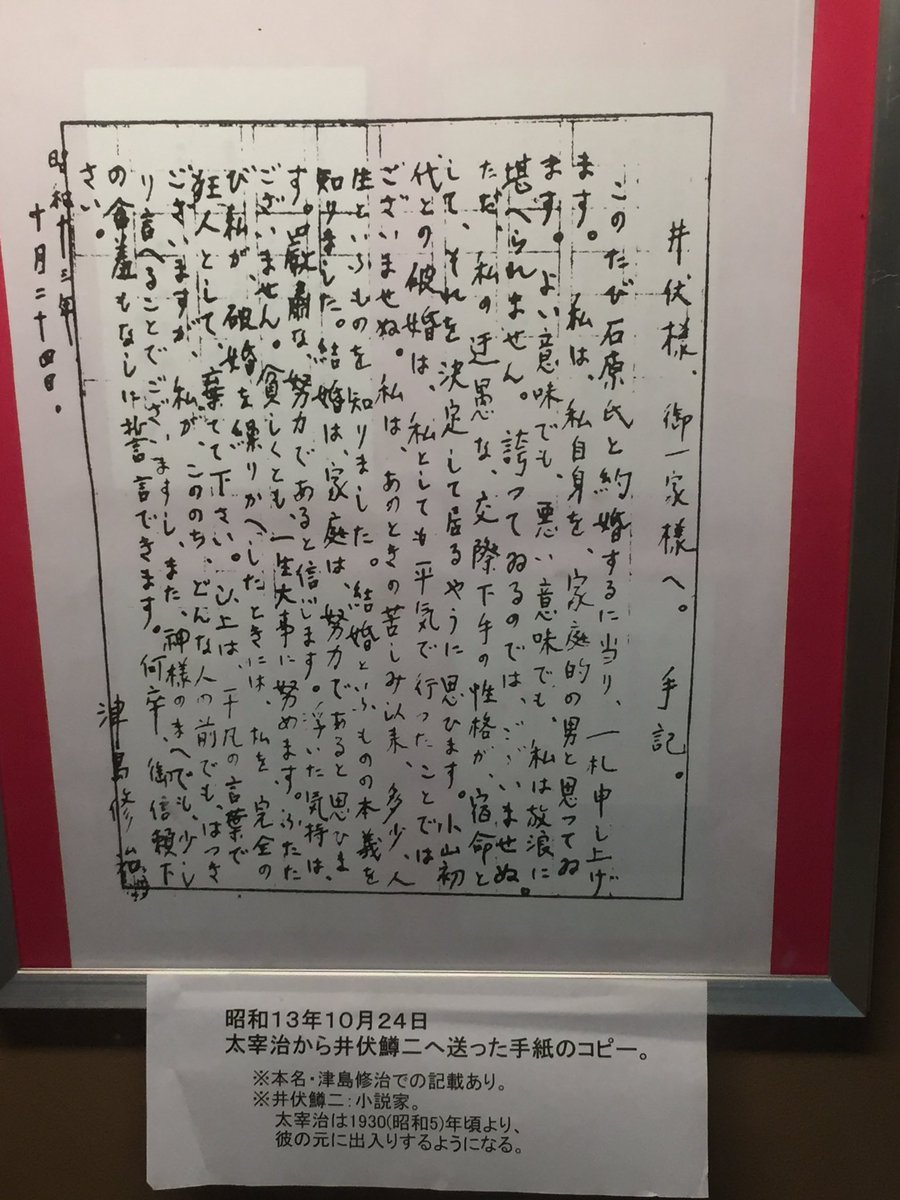 井伏様、御一家様へ。 手記。
このたび石原氏と約婚するに当り、一札申し上げ
ます。 私は、私自身を、家庭的の男と思ってゐ
ます。よい意味でも、悪い意味でも、私は放浪に
堪へられません。誇ってゐるのでは、ございませぬ。
ただ、私の迂愚な、交際下手の性格が、宿命と
して、それを決定して居るやうに思ひます。小山初
代との破婚は、私としても平気で行ったことでは
ございませぬ。私は、あのときの苦しみ以来、多少、人
生といふものを知りました。結婚といふものの本義を
知りました。結婚は、家庭は、努力であると思ひま
す。厳粛な、努力であると信じます。浮いた気持は、
ございません。貧しくとも、一生大事に努めます。ふたた
び私が、破婚を繰りかへしたときには、私を、完全の
狂人として、棄てて下さい。以上は、平凡の言葉で
ございますが、私が、こののち、どんな人の前でも、はっき
り言へることでございますし、また、神様のまへでも、少し
の含羞もなしに誓言できます。何卒、御信頼下
さい。
昭和十三年
十月二十四日。
津島修治
昭和13年10月24日
太宰治から井伏鱒二へ送った手紙のコピー。
※本名・津島修治での記載あり。
※井伏鱒二：小説家。
太宰治は1930(昭和5)年頃より、
彼の元に出入りするようになる。